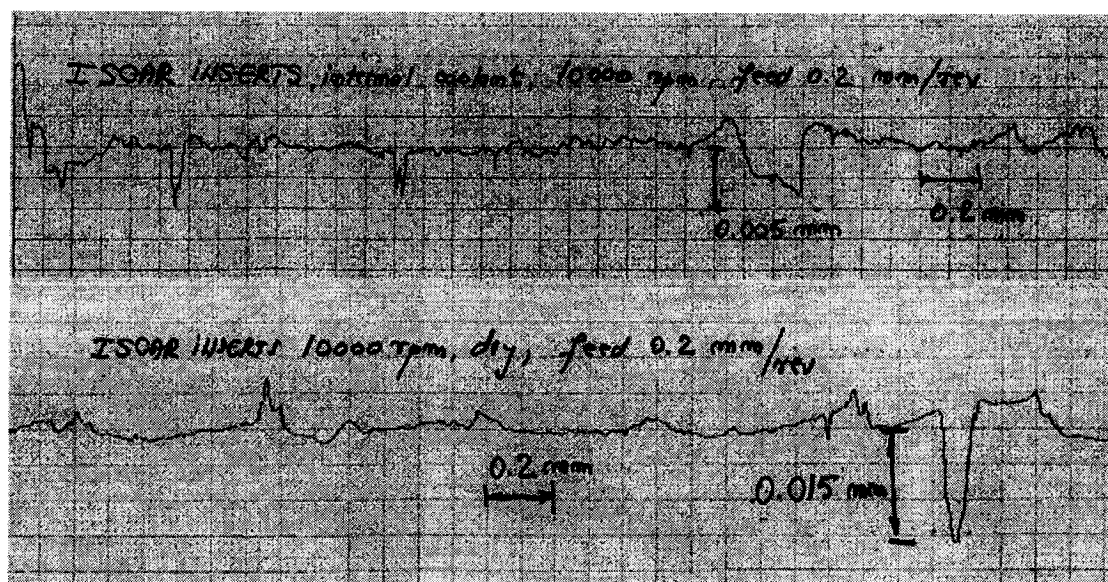 ISCAR INSERTS, internal coolant, 10000 rpm, feed 0.2 mm/rev
0.005 mm
0.2 mm
ISCAR INSERTS 10000 rpm, dry, feed 0.2 mm/rev
0.2 mm
0.015 mm